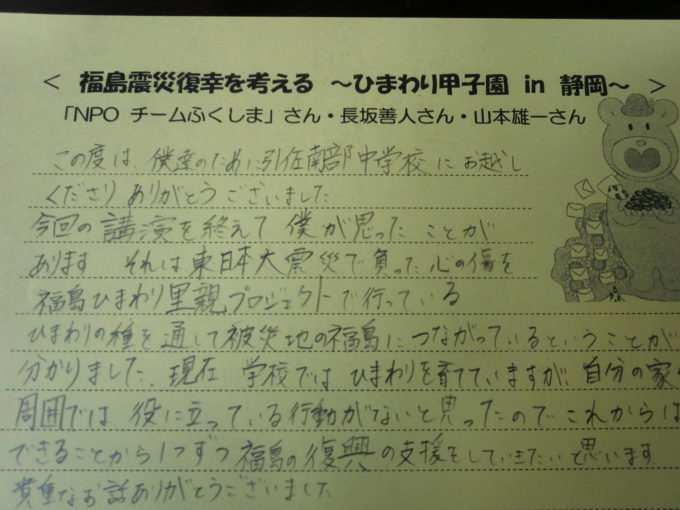 ＜ 福島震災復幸を考える ～ひまわり甲子園 in 静岡～ ＞
「NPO チームふくしま」さん・長坂善人さん・山本雄一さん
この度は、僕達のために引佐南部中学校にお越し
くださりありがとうございました
今回の講演を終えて僕が思ったことが
あります それは東日本大震災で負った心の傷を
福島ひまわり里親プロジェクトで行っている
ひまわりの種を通して被災地の福島につながっているということが
分かりました。現在 学校ではひまわりを育てていますが、自分の家
周囲では役に立っている行動がないと思ったのでこれからは
できることから1つずつ福島の復興の支援をしていきたいと思います
貴重なお話ありがとうございました